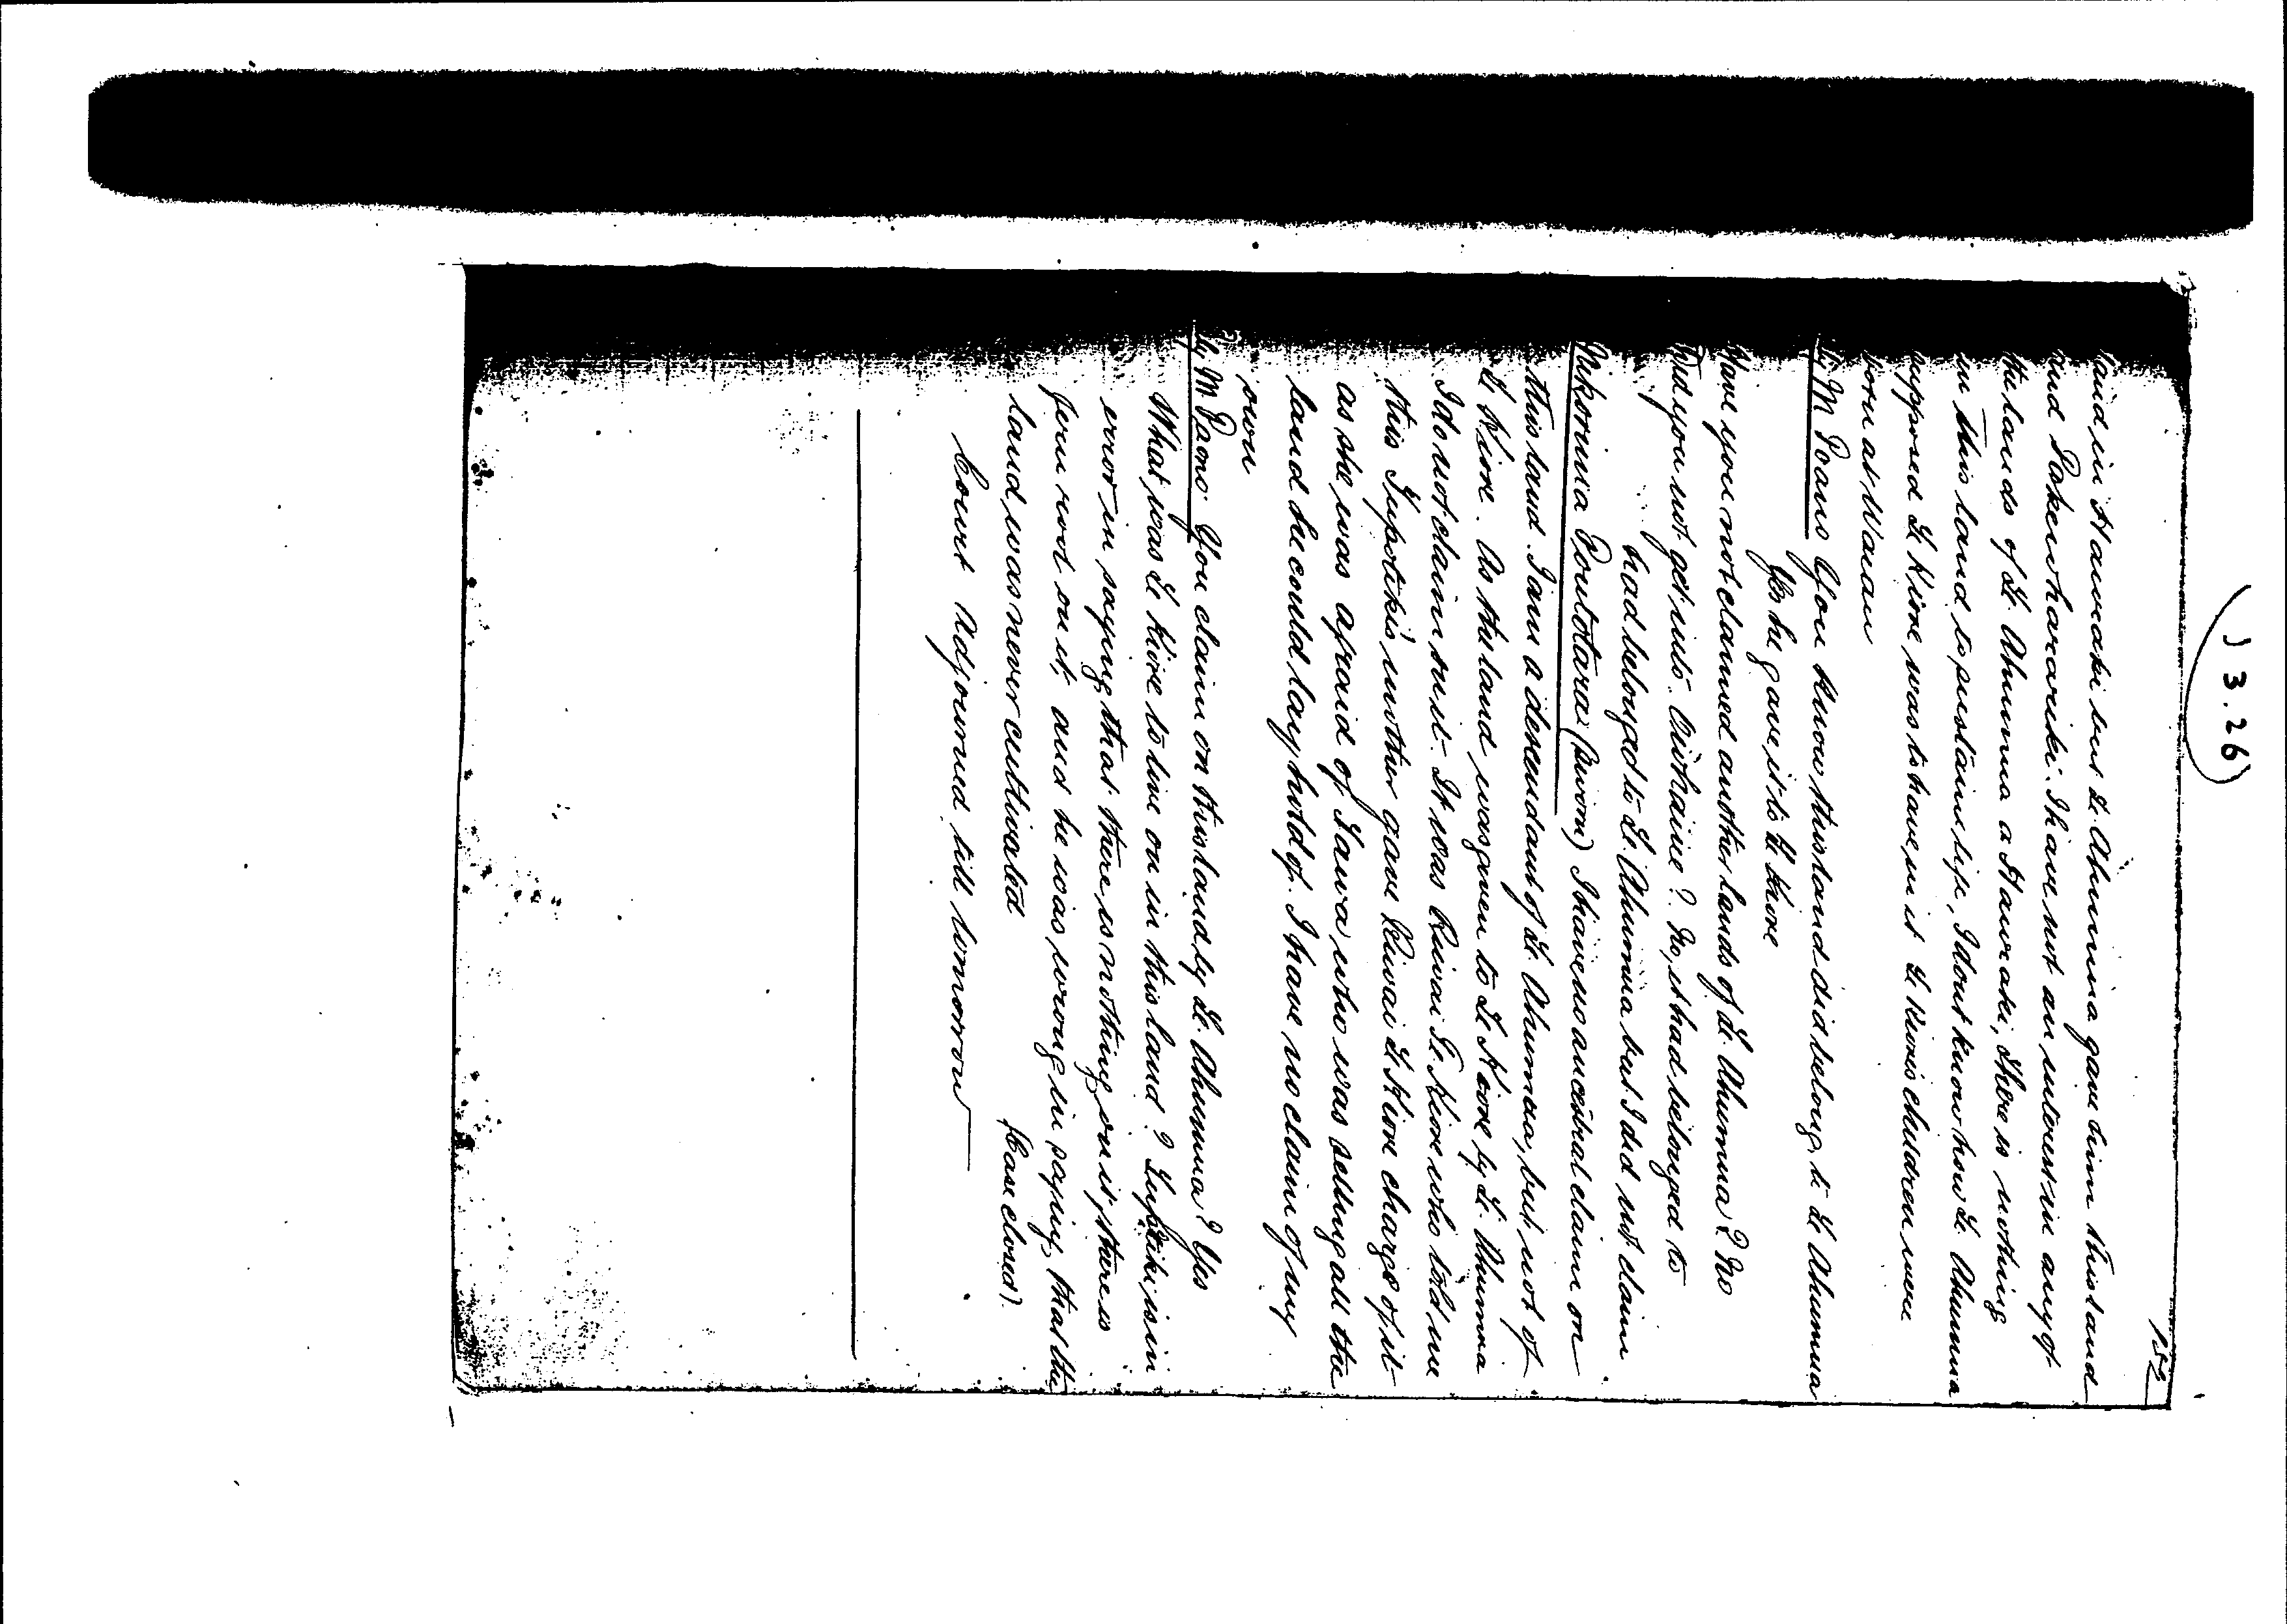 J 3.26
152
land in Hauraki but Te Ahumua gave him this land
and Pakewharariki. I have not an interest in any of
the lands of Te Ahumua a Hauraki, there is nothing
in this land to sustain life, I dont know how Te Ahumua
supposed Te Hiore was to have in it Te Hiore's children were
born at
By M. You know this land did belong to Te Ahumua
Yes he gave it to Te Hiore
Have you not claimed another lands of Te Ahumua? No
Did you not get into ? No, it had belonged to
had belonged to Te Ahumua but I did not claim
(sworn) I have no ancestral claim on
this land. I am a descendant of Te Ahumua, but not of
Te Hiore. As the land was given to Te Hiore by Te Ahumua
I do not claim in it. It was Te Hiore who told me
this mother gave Te Hiore charge of it
as she was afraid of who was selling all the
land he could lay hold of. I have no claim of my
own
By M. You claim on this land by Te Ahumua? Yes
What was Te Hiore to live on in this land? is in
error in saying that there is nothing on it, there is
fern root on it and he was wrong in saying that the
land was never cultivated
(Case closed).
Court Adjourned till tomorrow